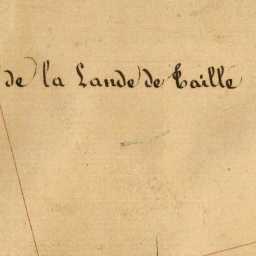 de la Lande de Taille